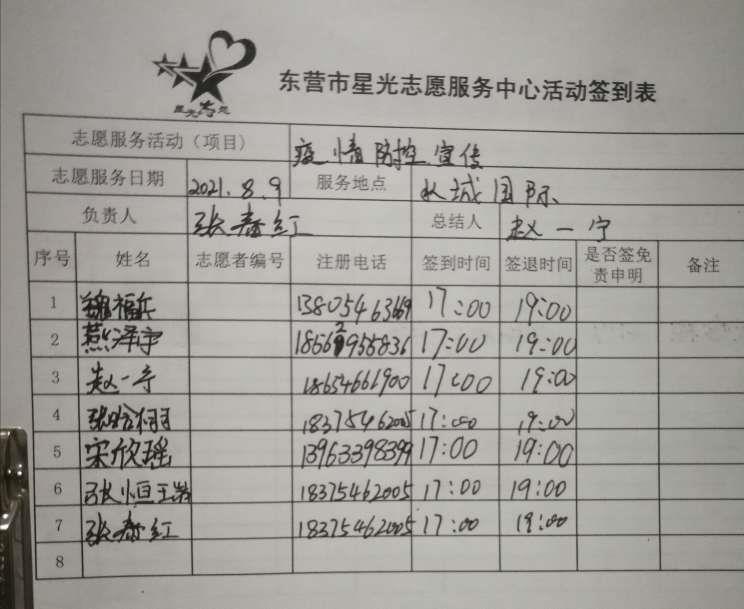 星光志愿
东营市星光志愿服务中心活动签到表
志愿服务活动（项目） 疫情防控宣传
志愿服务日期 2021.8.9 服务地点 长城国际
负责人 张春红 总结人 赵一宁
序号 姓名 志愿者编号 注册电话 签到时间 签退时间 是否签免责申明 备注
1 魏福兵 13805463669 17:00 19:00
2 燕泽宇 17:00 19:00
3 赵一宁 18654661900 17:00 19:00
4 张 18375462005 17:00 19:00
5 宋欣瑶 13963398399 17:00 19:00
6 张恒 18375462005 17:00 19:00
7 张春红 18375462005 17:00 19:00
8